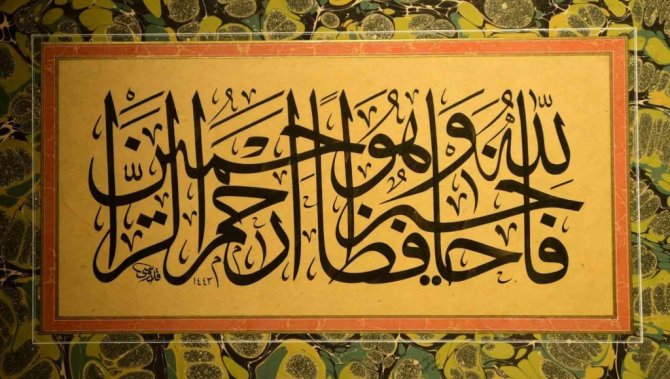 فَاللّٰهُ خَيْرٌ حَافِظًا وَهُوَ اَرْحَمُ الرَّاحِمِينَ
١٤٤٣